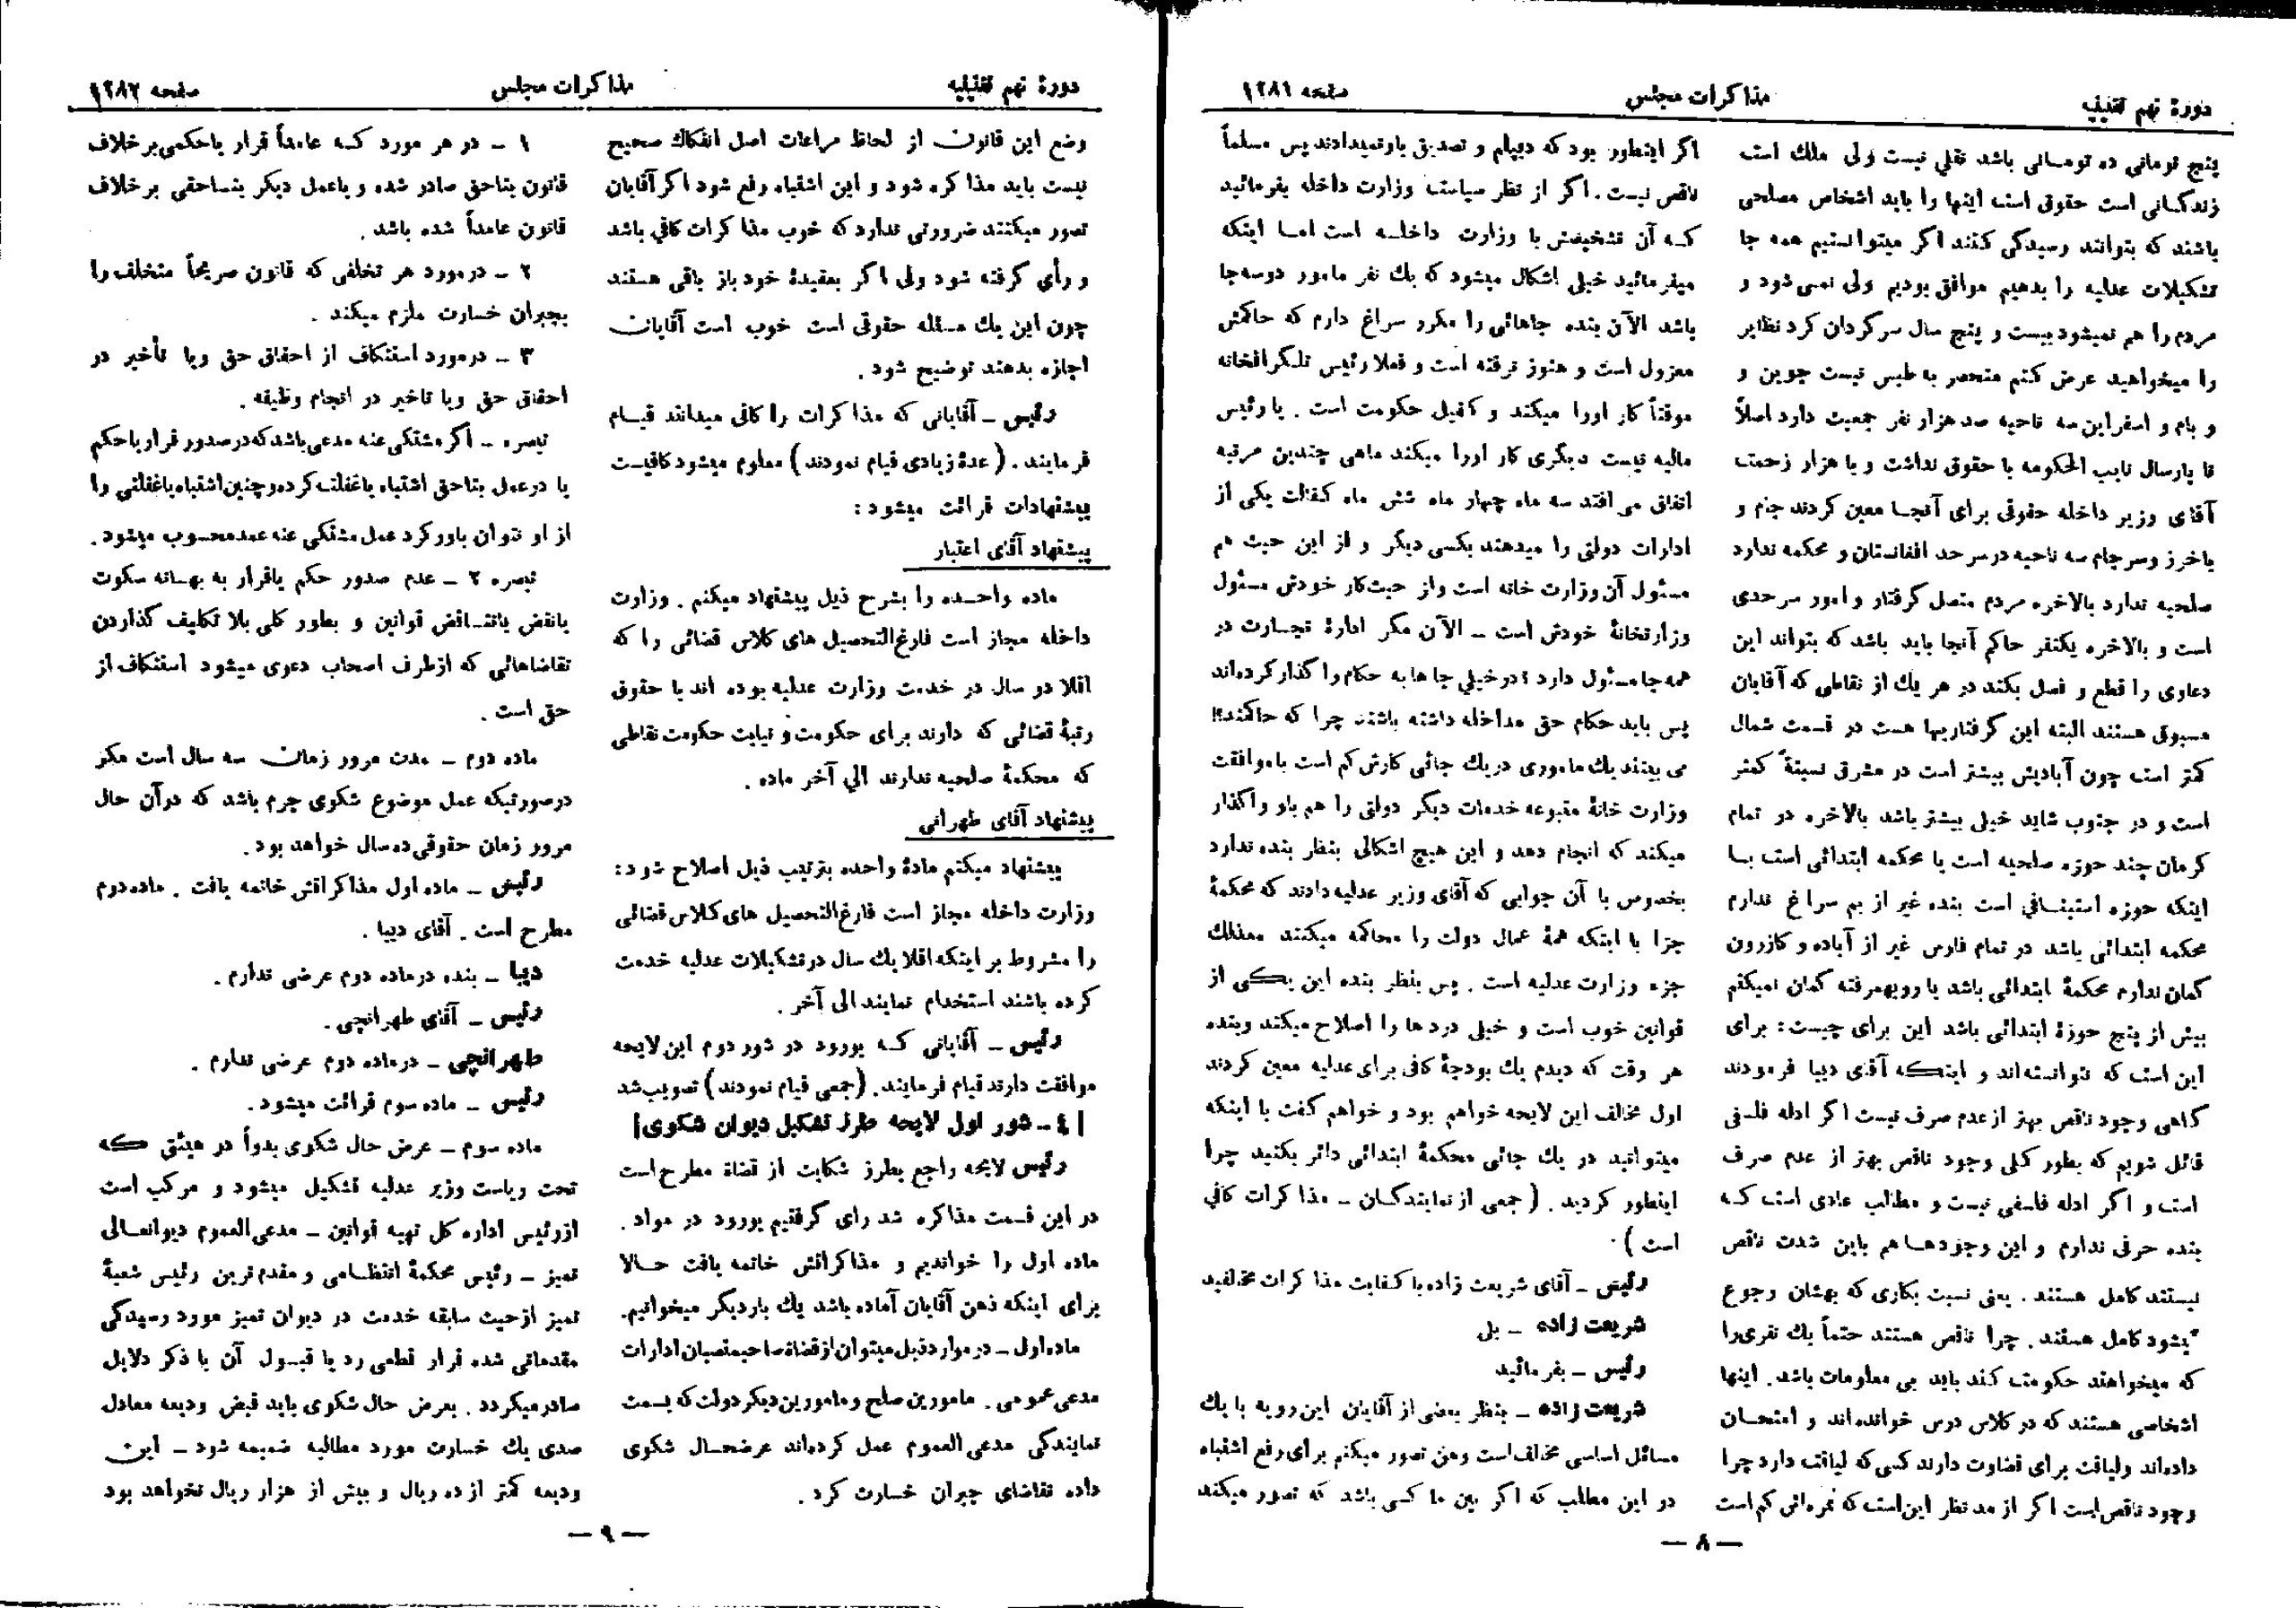 دورهٔ نهم تقنینیه
مذاکرات مجلس
صفحه ۱۲۸۱
پنج تومانی ده تومسانی باشد نقلی نیست ولی ملك است
زندگسانی است حقوقی است اینها را باید اشخاص مصلحی
باشند که بتوانند رسیدگی کنند اگر میتوانستیم همه جا
تشکیلات عدلیه را بدهیم موافق بودیم ولی نمی شود و
مردم را هم نمیشود بیست و پنج سال سرگردان کرد نظایر
را میخواهید عرض کنم منحصر به طبس نیست جوین و
و بام و اسفراین سه ناحیه صد هزار نفر جمعیت دارد اصلاً
تا پارسال نایب الحکومه با حقوق نداشت و با هزار زحمت
آقای وزیر داخله حقوقی برای آنجا معین کردند جام و
باخرز وسرجام سه ناحیه درسرحد افغانستان و محکمه ندارد
صلحیه ندارد بالاخره مردم متصل گرفتار و امور سرحدی
است و بالاخره یکنفر حاکم آنجا باید باشد که بتواند این
دعاوی را قطع و فصل بکند در هر یك از نقاطی که آقایان
مسبوق هستند البته این گرفتاریها هست در قسمت شمال
کمتر است چون آبادیش بیشتر است در مشرق نسبةً کمتر
است و در جنوب شاید خیلی بیشتر باشد بالاخره در تمام
کرمان چند حوزه صلحیه است یا محکمه ابتدائی است بـا
اینکه حوزه استینـافی است بنده غیر از بم سراغ ندارم
محکمه ابتدائی باشد در تمام فارس غیر از آباده و کازرون
گمان ندارم محکمهٔ ابتدائی باشد یا رویهمرفته گمان نمیکنم
بیش از پنج حوزهٔ ابتدائی باشد این برای چیست: برای
این است که نتوانسته‌اند و اینـکه آقای دیبا فرمودند
گاهی وجود ناقص بهتر از عدم صرف نیست اگر ادله فلسفی
قائل شویم که بطور کلی وجود ناقص بهتر از عدم صرف
است و اگر ادله فلسفی نیست و مطالب عادی است کـه
بنده حرفی ندارم و این وجودهـا هم باین شدت ناقص
نیستند کامل هستند . یعنی نسبت بکاری که بهشان رجوع
میشود کامل هستند . چرا ناقص هستند حتماً یك نفری را
که میخواهند حکومت کند باید بی معلومات باشد . اینها
اشخاصی هستند که در کلاس درس خوانده‌اند و امتحـان
داده‌اند ولیاقت برای قضاوت دارند کسی که لیاقت دارد چرا
وجود ناقص است اگر از مد نظر این است که نمره‌اش کم است
اگر اینطور بود که دیپلم و تصدیق باو نمیدادند پس مسلماً
ناقص نیست . اگر از نظر سیاست وزارت داخله بفرمائید
کـه آن تشخیصش با وزارت داخلـه است امـا اینکه
میفرمائید خیلی اشکال میشود که یك نفر مامور دوسه جا
باشد الآن بنده جاهائی را مکرر سراغ دارم که حاکمش
معزول است و هنوز نرفته است و فعلا رئیس تلـگرافخانه
موقتاً کار اورا میکند و کفیل حکومت است . یا رئیس
مالیه نیست دیگری کار اورا میکند ماهی چندین مرتبه
اتفاق می افتد سه ماه چهار ماه شش ماه کفالت یکی از
ادارات دولتی را میدهند بکسی دیگر و از این حیث هم
مسئول آن وزارت خانه است واز حیث کار خودش مسئول
وزارتخانهٔ خودش است ـ الآن مگر ادارهٔ تجـارت در
همه‌جا مسئول دارد ؟ درخیلی جاها به حکام واگذار کرده‌اند
پس باید حکام حق مداخله داشته باشند چرا که حاکمند!!
می بینند یك ماموری دریك جائی کارش کم است با موافقت
وزارت خانهٔ متبوعه خدمات دیگر دولتی را هم باو واگذار
میکند که انجام دهد و این هیچ اشکالی بنظر بنده ندارد
بخصوص با آن جوابی که آقای وزیر عدلیه دادند که محکمهٔ
جزا با اینکه همهٔ عمال دولت را محاکمه میکنند معذلك
جزء وزارت عدلیه است . پس بنظر بنده این یـکی از
قوانین خوب است و خیلی درد ها را اصلاح میکند وبنده
هر وقت که دیدم یك بودجهٔ کافی برای عدلیه معین کردند
اول مخالف این لایحه خواهم بود و خواهم گفت با اینکه
میتوانید در یك جائی محکمهٔ ابتدائی دائر بکنید چرا
اینطور کردید . ( جمعی از نمایندگـان ـ مذاکرات کافی
است )
رئیس ـ آقای شریعت زاده با کفایت مذاکرات مخالفید
شریعت زاده ـ بلی
رئیس ـ بفرمائید
شریعت زاده ـ بنظر بعضی از آقایان این رویه با یك
مسائل اساسی مخالف است ومن تصور میکنم برای رفع اشتباه
در این مطلب که اگر بین ما کسی باشد که تصور میکند
ـ ۸ ـ
دورهٔ نهم تقنینیه
مذاکرات مجلس
صفحه ۱۲۸۲
وضع این قانون از لحاظ مراعات اصل انفکاك صحیح
نیست باید مذاکره شود و این اشتباه رفع شود اگر آقایان
تصور میکنند ضرورتی ندارد که خوب مذاکرات کافی باشد
و رأی گرفته شود ولی اگر بعقیدهٔ خود باز باقی هستند
چون این یك مسئله حقوقی است خوب است آقایان
اجازه بدهند توضیح شود .
رئیس ـ آقایانی که مذاکرات را کافی میدانند قیـام
فرمایند . ( عدهٔ زیادی قیام نمودند ) معلوم میشود کافیست
پیشنهادات قرائت میشود :
پیشنهاد آقای اعتبار
ماده واحـده را بشرح ذیل پیشنهاد میکنم . وزارت
داخله مجاز است فارغ‌التحصیل های کلاس قضائی را که
اقلا دو سال در خدمت وزارت عدلیه بوده اند با حقوق
رتبهٔ قضائی که دارند برای حکومت و نیابت حکومت نقاطی
که محکمهٔ صلحیه ندارند الی آخر ماده .
پیشنهاد آقای طهرانی
پیشنهاد میکنم مادهٔ واحده بترتیب ذیل اصلاح شود :
وزارت داخله مجاز است فارغ‌التحصیل های کلاس قضائی
را مشروط بر اینکه اقلا یك سال در تشکیلات عدلیه خدمت
کرده باشند استخدام نمایند الی آخر .
رئیس ـ آقایانی کـه بورود در شور دوم این لایحه
موافقت دارند قیام فرمایند . (جمعی قیام نمودند) تصویب شد
[ ٤ ـ شور اول لایحه طرز تشکیل دیوان شکوی]
رئیس لایحه راجع بطرز شکایت از قضاة مطرح است
در این قسمت مذاکره شد رای گرفتیم بورود در مواد .
ماده اول را خواندیم و مذاکراتش خاتمه یافت حـالا
برای اینکه ذهن آقایان آماده باشد یك بار دیگر میخوانیم.
ماده اول ـ در موارد ذیل میتوان از قضاة صاحبمنصبان ادارات
مدعی عمومی . مامورین صلح و مامورین دیگر دولت که بسمت
نمایندگی مدعی العموم عمل کرده‌اند عرضحـال شکوی
داده تقاضای جبران خسارت کرد .
۱ ـ در هر مورد کـه عامداً قرار یاحکمی برخلاف
قانون بناحق صادر شده و یا عمل دیگر بنـاحقی برخلاف
قانون عامداً شده باشد .
۲ ـ درمورد هر تخلفی که قانون صریحاً متخلف را
بجبران خسارت ملزم میکند .
۳ ـ درمورد استنکاف از احقاق حق ویا تأخیر در
احقاق حق ویا تاخیر در انجام وظیفه .
تبصره ـ اگر مشتکی عنه مدعی باشد که در صدور قرار یا حکم
یا در عمل بناحق اشتباه یا غفلت کرده و چنین اشتباه یا غفلتی را
از او نتوان باور کرد عمل مشتکی عنه عمد محسوب میشود .
تبصره ۲ ـ عدم صدور حکم یاقرار به بهـانه سکوت
یانقض یاتنـاقض قوانین و بطور کلی بلا تکلیف گذاردن
تقاضاهائی که ازطرف اصحاب دعوی میشود استنکاف از
حق است .
ماده دوم ـ مدت مرور زمان سه سال است مگر
درصورتیکه عمل موضوع شکوی جرم باشد که درآن حال
مرور زمان حقوقی ده سال خواهد بود.
رئیس ـ ماده اول مذاکراتش خاتمه یافت . ماده دوم
مطرح است . آقای دیبا .
دیبا ـ بنده درماده دوم عرضی ندارم .
رئیس ـ آقای طهرانچی .
طهرانچی ـ درماده دوم عرضی ندارم .
رئیس ـ ماده سوم قرائت میشود.
ماده سوم ـ عرض حال شکوی بدواً در هیئتی کـه
تحت ریاست وزیر عدلیه تشکیل میشود و مرکب است
ازرئیس اداره کل تهیه قوانین ـ مدعی العموم دیوانعـالی
تمیز ـ رئیس محکمهٔ انتظـامی و مقدم‌ترین رئیس شعبهٔ
تمیز ازحیث سابقه خدمت در دیوان تمیز مورد رسیدگی
مقدماتی شده قرار قطعی رد یا قبـول آن با ذکر دلایل
صادر میگردد . بعرض حال شکوی باید قبض ودیعه معادل
صدی یك خسارت مورد مطالبه ضمیمه شود ـ این
ودیعه کمتر از ده ریال و بیش از هزار ریال نخواهد بود
ـ ۹ ـ